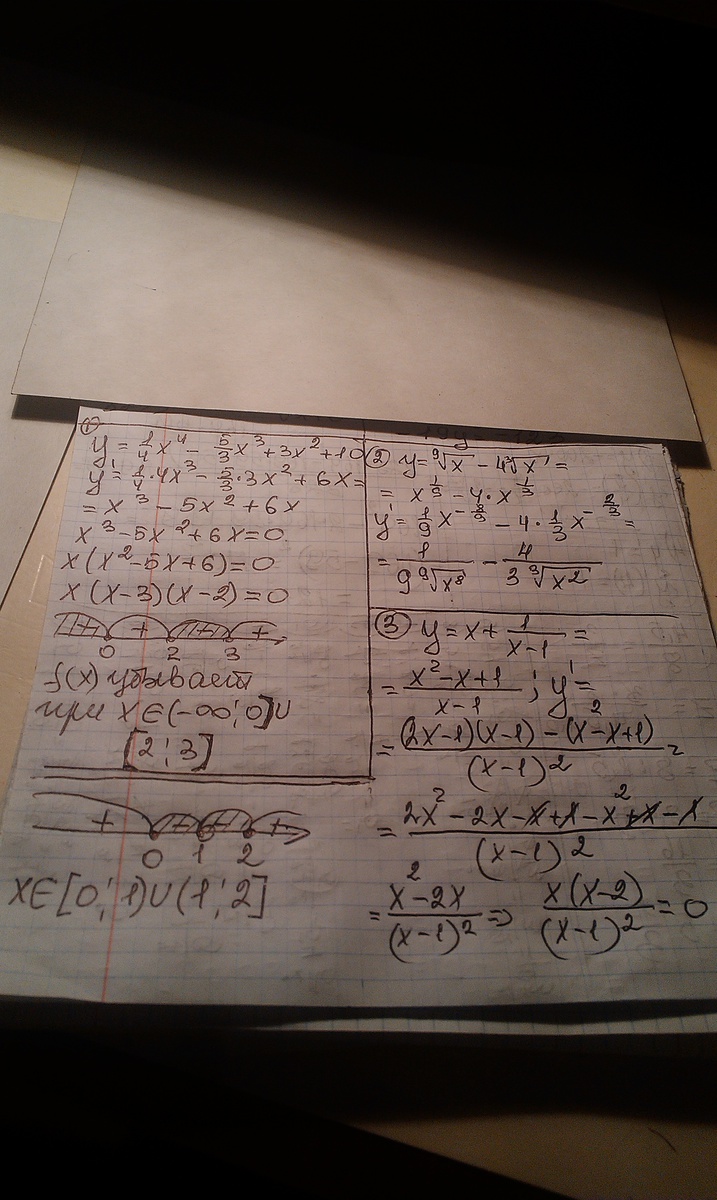 ①
y = 1/4 x⁴ - 5/3 x³ + 3x² + 10
y' = 1/4 · 4x³ - 5/3 · 3x² + 6x =
= x³ - 5x² + 6x
x³ - 5x² + 6x = 0
x(x² - 5x + 6) = 0
x(x-3)(x-2) = 0
+ +
0 2 3
f(x) убывает
при x∈(-∞; 0]∪
[2; 3]
② y = ⁹√x - 4∛x =
= x^(1/9) - 4 · x^(1/3)
y' = 1/9 x^(-8/9) - 4 · 1/3 x^(-2/3) =
= 1/(9 ⁹√x⁸) - 4/(3 ∛x²)
③ y = x + 1/(x-1) =
= (x² - x + 1)/(x-1) ; y' =
= ((2x-1)(x-1) - (x² - x + 1))/(x-1)² =
= (2x² - 2x - x + 1 - x² + x - 1)/(x-1)²
= (x² - 2x)/(x-1)² ⇒ x(x-2)/(x-1)² = 0
+ +
0 1 2
x∈[0; 1)∪(1; 2]